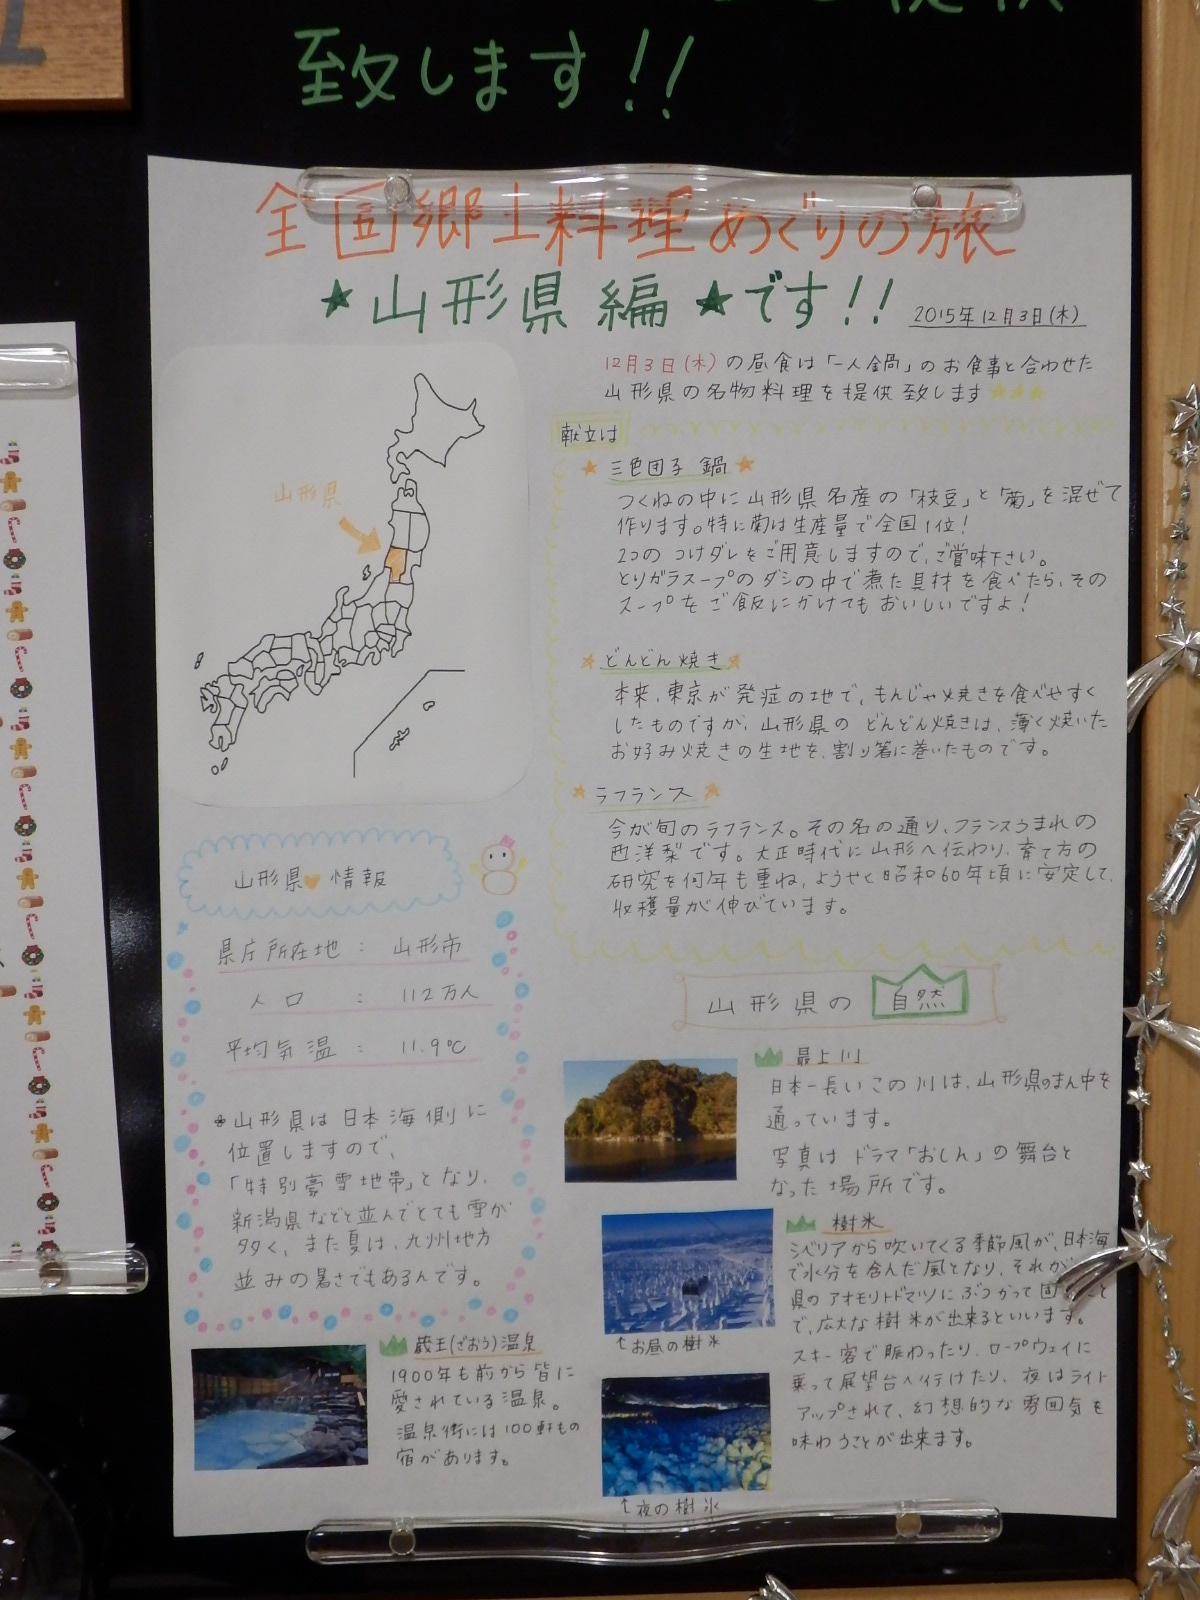 致します!!
全国郷土料理めぐりの旅
★山形県編★です!!
2015年12月3日(木)
12月3日(木)の昼食は「一人鍋」のお食事と合わせた
山形県の名物料理を提供致します★★★
献立は
★三色団子鍋★
つくねの中に山形県名産の「枝豆」と「菊」を混ぜて
作ります。特に菊は生産量で全国1位!
2つのつけダレをご用意しますので、ご賞味下さい。
とりガラスープのダシの中で煮た具材を食べたら、その
スープをご飯にかけてもおいしいですよ!
★どんどん焼き★
本来、東京が発症の地で、もんじゃ焼きを食べやすく
したものですが、山形県のどんどん焼きは、薄く焼いた
お好み焼きの生地を、割り箸に巻いたものです。
★ラフランス★
今が旬のラフランス。その名の通り、フランスうまれの
西洋梨です。大正時代に山形へ伝わり、育て方の
研究を何年も重ね、ようやく昭和60年頃に安定して、
収穫量が伸びています。
山形県
山形県♥情報
県庁所在地 : 山形市
人口 : 112万人
平均気温 : 11.9℃
*山形県は日本海側に
位置しますので、
「特別豪雪地帯」となり、
新潟県などと並んでとても雪が
多く、また夏は、九州地方
並みの暑さでもあるんです。
蔵王(ざおう)温泉
1900年も前から皆に
愛されている温泉。
温泉街には100軒もの
宿があります。
山形県の自然
最上川
日本一長いこの川は、山形県のまん中を
通っています。
写真はドラマ「おしん」の舞台と
なった場所です。
樹氷
シベリアから吹いてくる季節風が、日本海
で水分を含んだ風となり、それが
県のアオモリトドマツにぶつかって固
で、広大な樹氷が出来るといいます。
スキー客で賑わったり、ロープウェイに
乗って展望台へ行けたり、夜はライト
アップされて、幻想的な雰囲気を
味わうことが出来ます。
↑お昼の樹氷
↑夜の樹氷